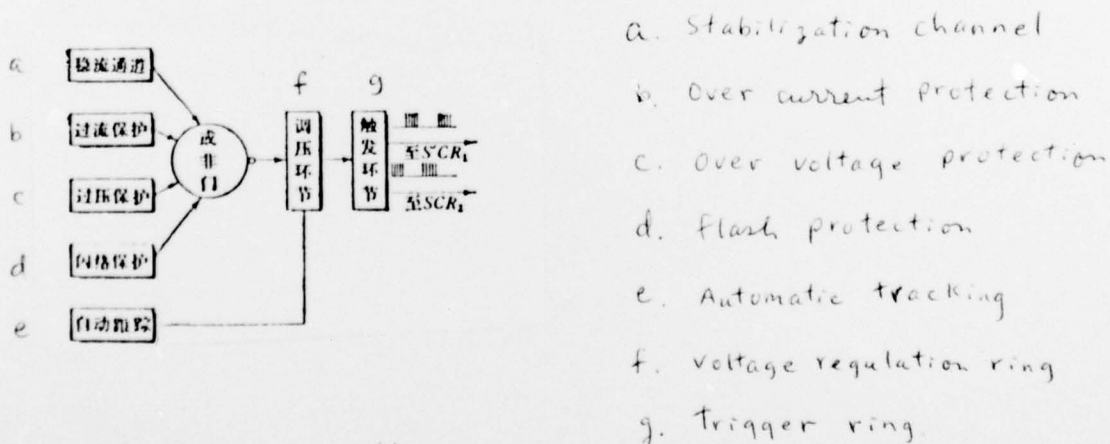 a 稳流通道
b 过流保护
c 过压保护
d 闪络保护
e 自动跟踪
或非门
f
调压环节
g
触发环节
至SCR₁
至SCR₂
a. Stabilization channel
b. Over current protection
c. Over voltage protection
d. flash protection
e. Automatic tracking
f. voltage regulation ring
g. trigger ring.